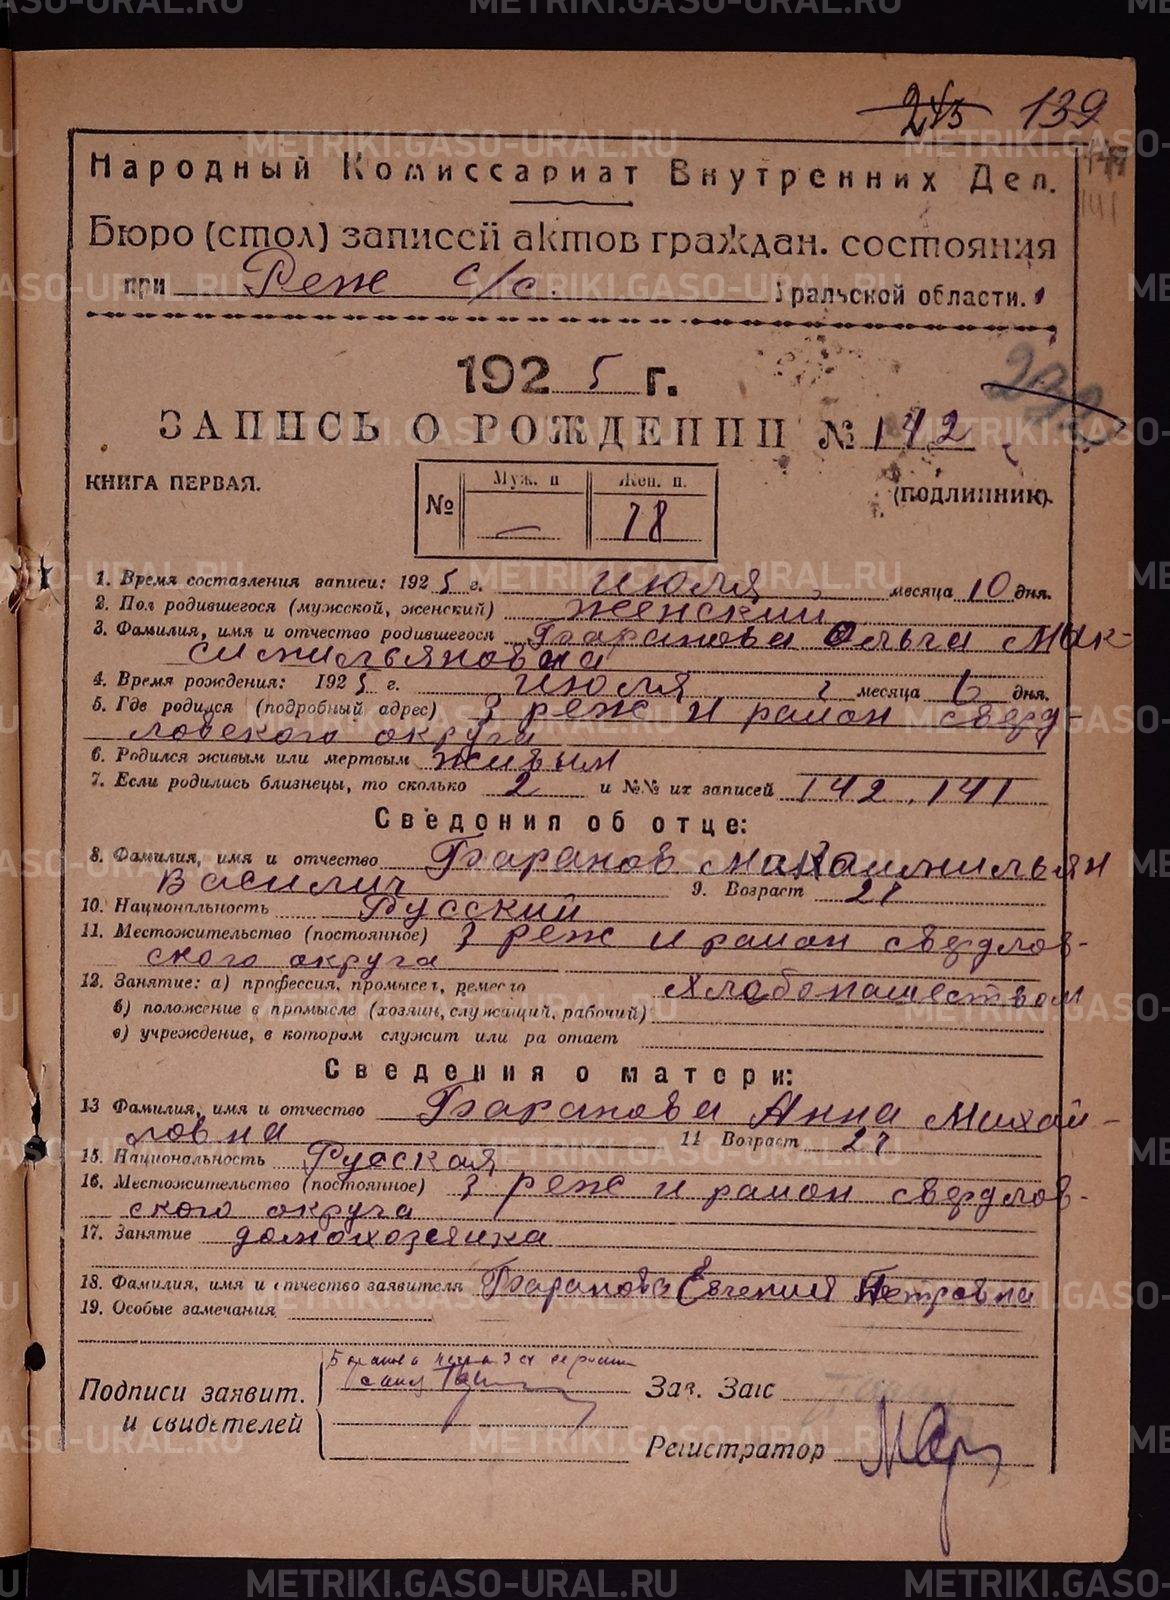 245 139
Народный Комиссариат Внутренних Дел.
Бюро (стол) записей актов граждан. состояния
при Реж с/с. Уральской области.
1925 г.
232
ЗАПИСЬ О РОЖДЕНИИ № 142
КНИГА ПЕРВАЯ.
(ПОДЛИННИК).
№ Муж. п — Жен. п. 78
1. Время составления записи: 1925 г. июля месяца 10 дня.
2. Пол родившегося (мужской, женский) женский
3. Фамилия, имя и отчество родившегося Баранова Ольга Мак-
симильяновна
4. Время рождения: 1925 г. июля месяца 6 дня.
5. Где родился (подробный адрес) з реж и район сверд-
ловского округа
6. Родился живым или мертвым живым
7. Если родились близнецы, то сколько 2 и №№ их записей 142, 141
Сведения об отце:
8. Фамилия, имя и отчество Баранов Макасимильян
Василич 9. Возраст 27
10. Национальность Русский
11. Местожительство (постоянное) з реж и район свердлов-
ского округа
12. Занятие: а) профессия, промысел, ремесло хлебопашеством
б) положение в промысле (хозяин, служащий, рабочий)
в) учреждение, в котором служит или ра отает
Сведения о матери:
13 Фамилия, имя и отчество Баранова Анна Михай-
ловна 14 Возраст 27
15. Национальность Русская
16. Местожительство (постоянное) з реж и район свердлов-
ского округа
17. Занятие домохозяика
18. Фамилия, имя и отчество заявителя Баранова Евгений Петровна
19. Особые замечания
Подписи заявит.
и свидетелей
Баранова
Зав. Загс
Регистратор
METRIKI.GASO-URAL.RU